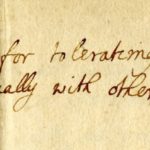 for toleratin
ually with other